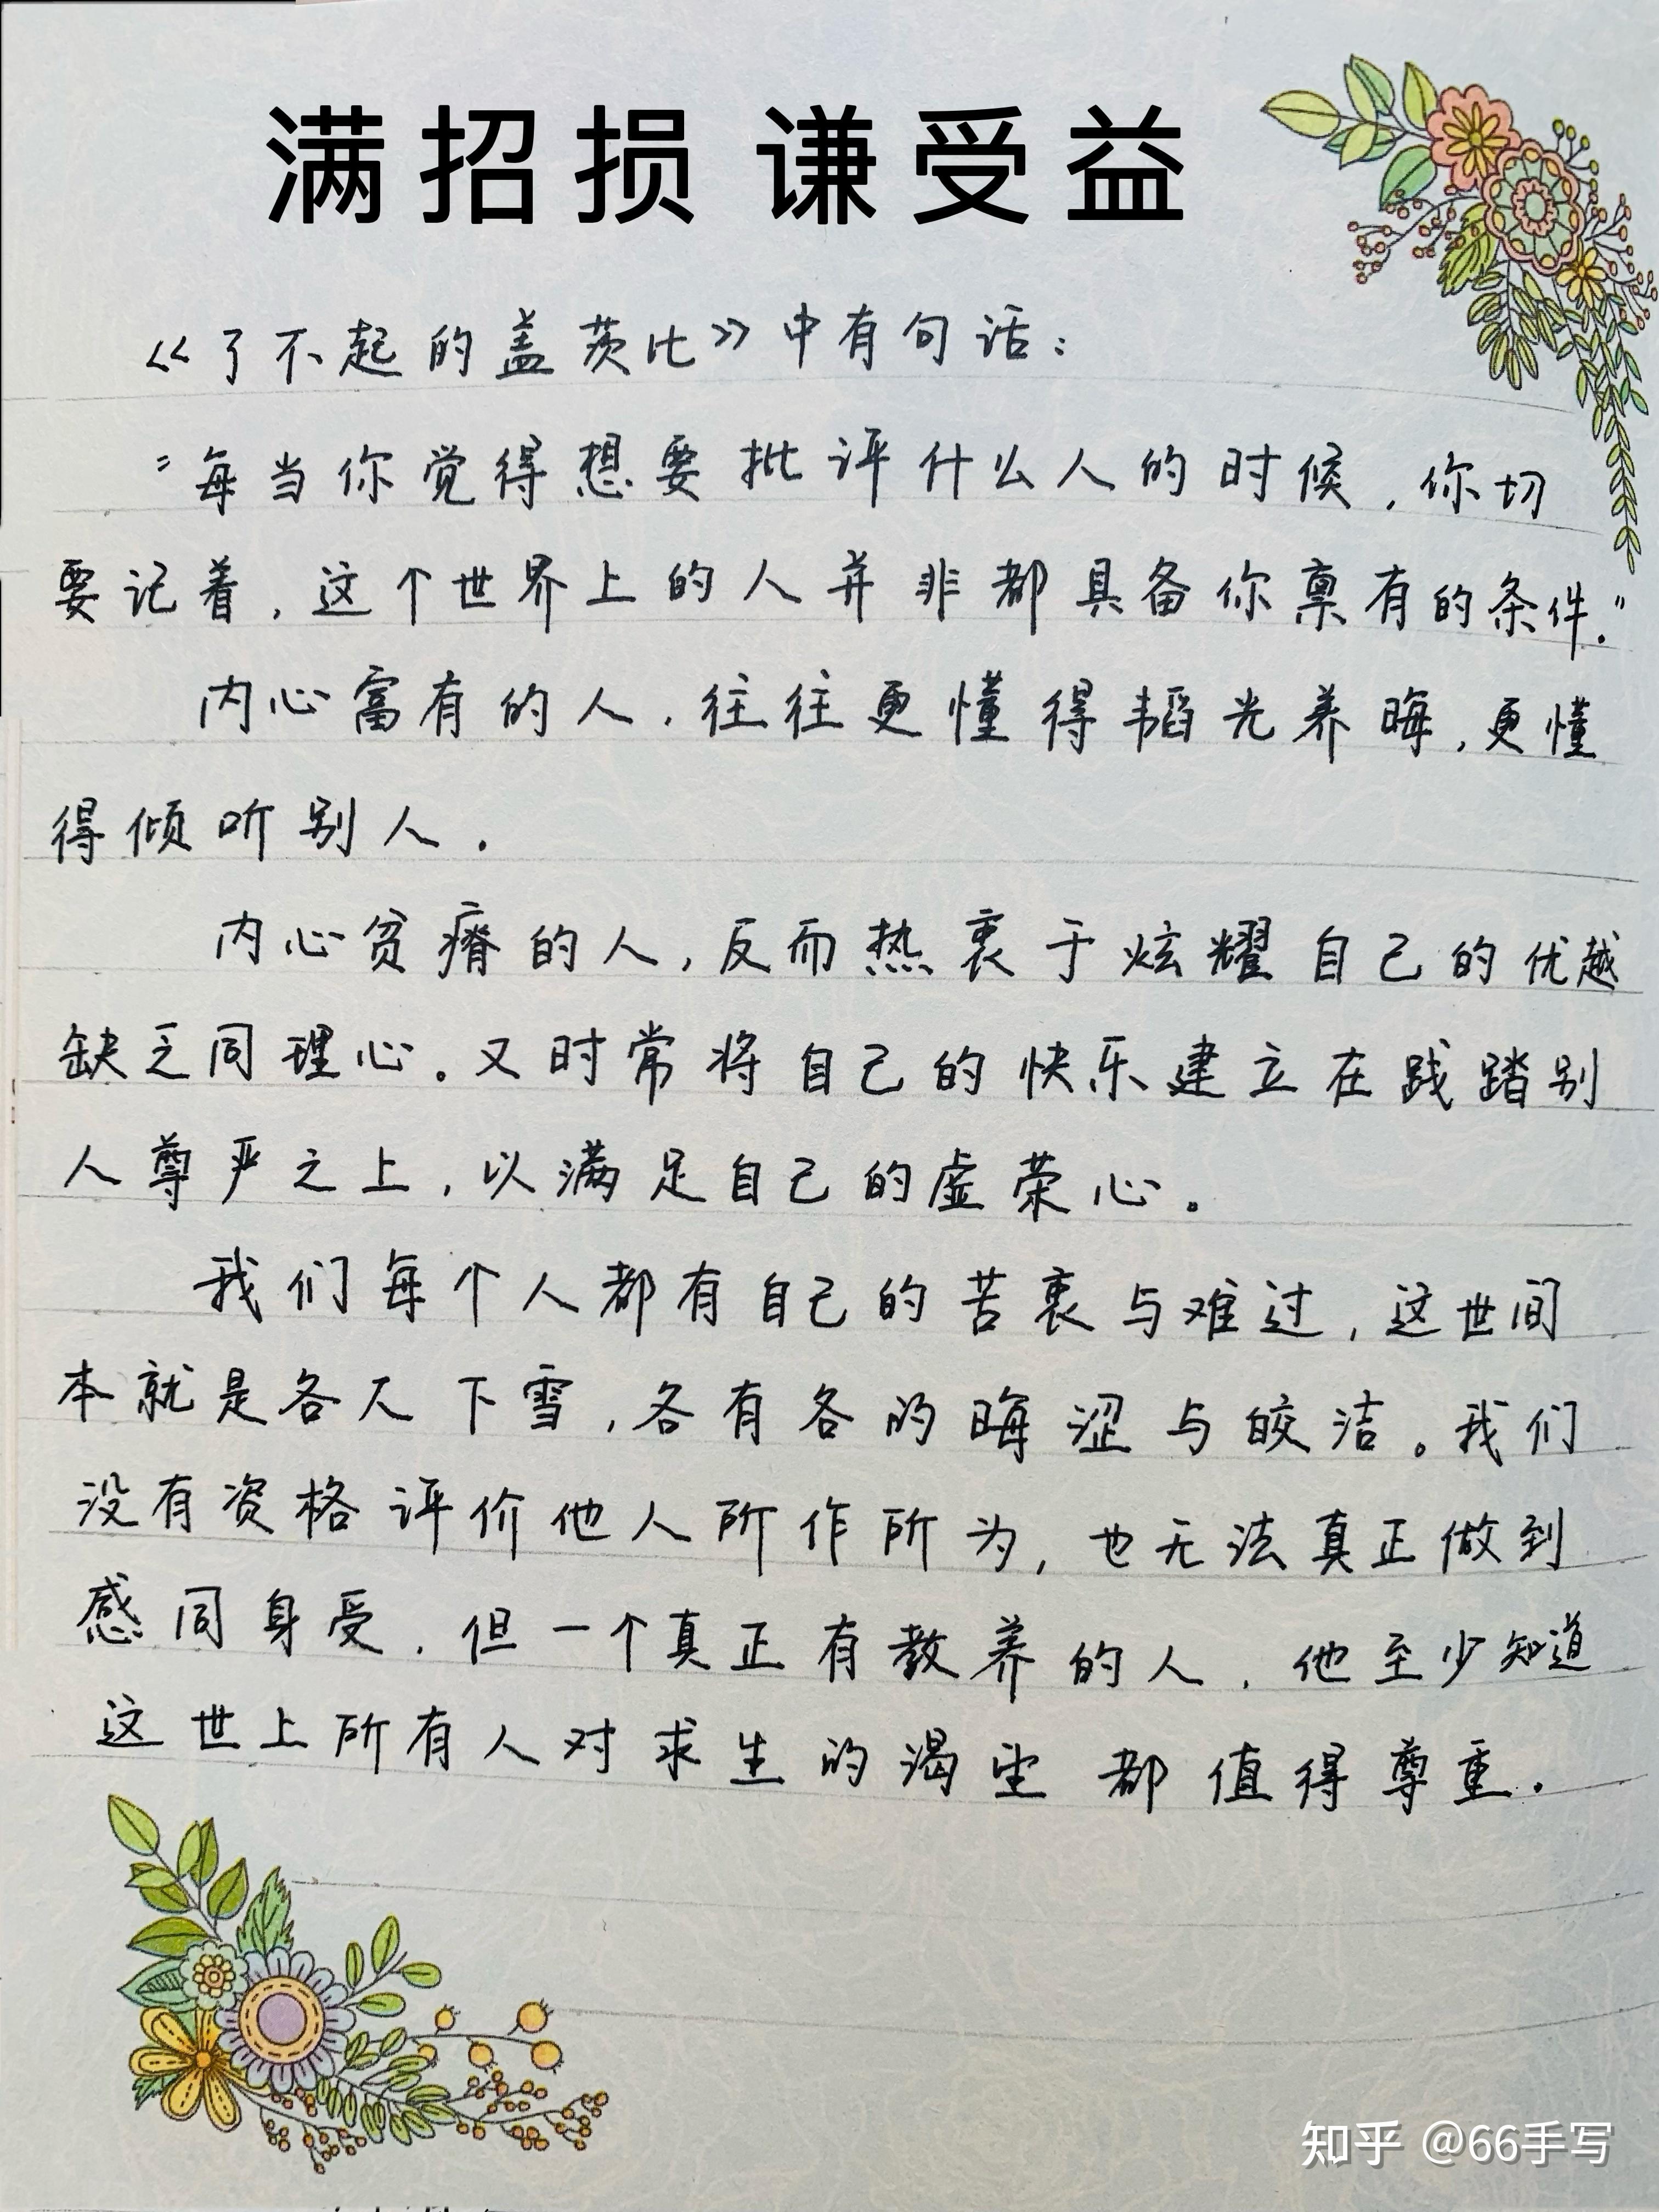 满招损 谦受益
《了不起的盖茨比》中有句话：
“每当你觉得想要批评什么人的时候，你切
要记着，这个世界上的人并非都具备你禀有的条件。”
内心富有的人，往往更懂得韬光养晦，更懂
得倾听别人。
内心贫瘠的人，反而热衷于炫耀自己的优越
缺乏同理心。又时常将自己的快乐建立在践踏别
人尊严之上，以满足自己的虚荣心。
我们每个人都有自己的苦衷与难过，这世间
本就是各人下雪，各有各的晦涩与皎洁。我们
没有资格评价他人所作所为，也无法真正做到
感同身受，但一个真正有教养的人，他至少知道
这世上所有人对求生的渴望都值得尊重。
知乎 @66手写